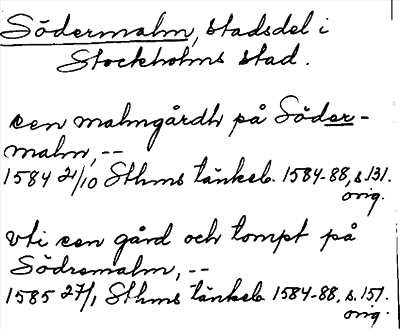 Södermalm, stadsdel i
Stockholms stad.
een malmgårdh på Söder-
malm, --
1584 21/10 Sthms tänkeb. 1584-88, s.131.
orig.
vti een gård och tompt på
Södremalm, --
1585 27/1 Sthms tänkeb. 1584-88, s.151.
orig.